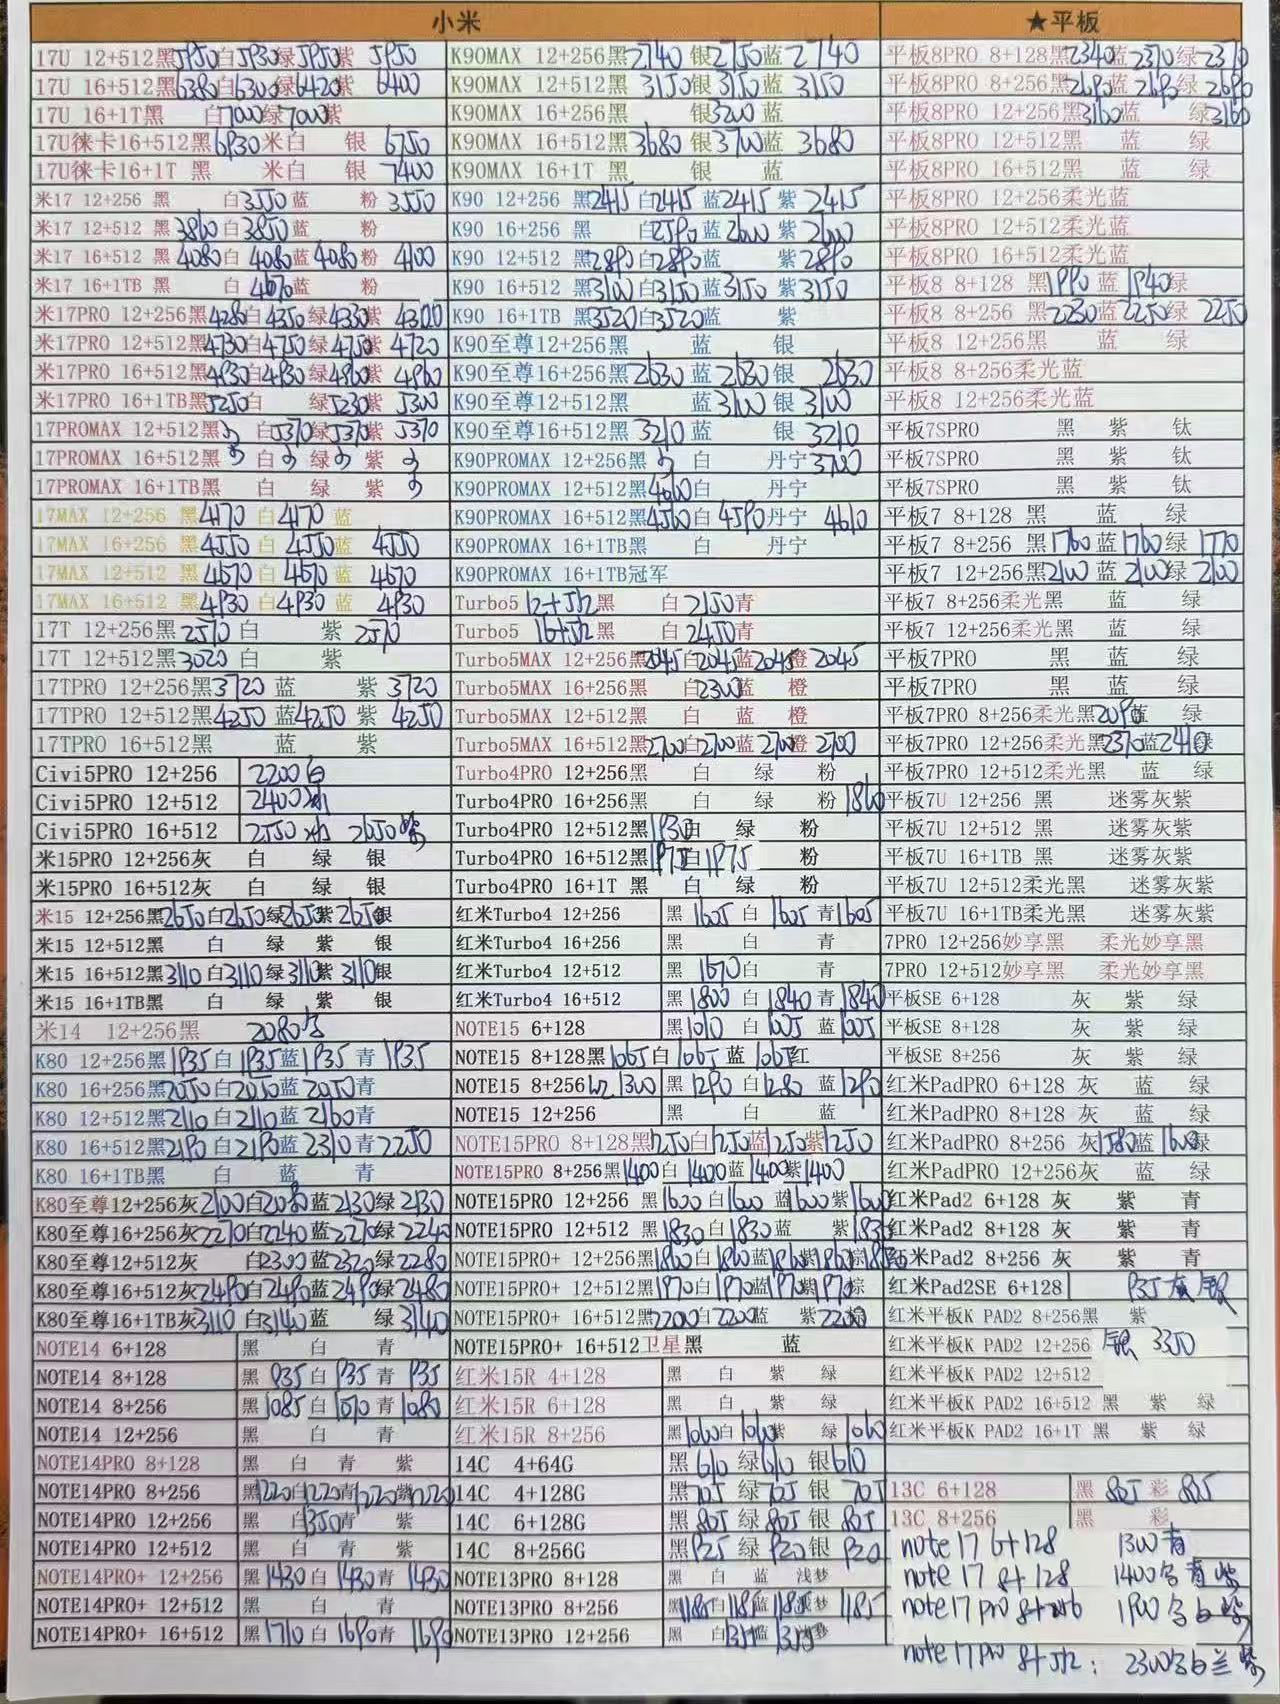 小米
17U 12+512黑5950白5930绿5950紫 5950
17U 16+512黑6380白6300绿6420紫 6400
17U 16+1T黑 白7000绿7000紫
17U徕卡16+512黑6930米白 银 6750
17U徕卡16+1T 黑 米白 银 7400
米17 12+256 黑 白3550蓝 粉 3550
米17 12+512 黑3860白3850蓝 粉
米17 16+512 黑4080白4080蓝4080粉 4100
米17 16+1TB黑 白4670蓝 粉
米17PRO 12+256黑4280白4350绿4330紫 4300
米17PRO 12+512黑4730白4750绿4750紫 4720
米17PRO 16+512黑4930白4930绿4960紫 4960
米17PRO 16+1TB黑5250白 绿5230紫 5300
17PROMAX 12+512黑 白5370绿5370紫 5370
17PROMAX 16+512黑 白 绿 紫
17PROMAX 16+1TB黑 白 绿 紫
17MAX 12+256 黑4170 白4170 蓝
17MAX 16+256 黑4550 白4550蓝 4550
17MAX 12+512 黑4670 白4670蓝 4670
17MAX 16+512 黑4930 白4930 蓝 4930
17T 12+256黑2570白 紫 2570
17T 12+512黑3020白 紫
17TPRO 12+256黑3720 蓝 紫 3720
17TPRO 12+512黑4250 蓝4250 紫 4250
17TPRO 16+512黑 蓝 紫
Civi5PRO 12+256 2200白
Civi5PRO 12+512 2400冰
Civi5PRO 16+512 2550冰 2650紫
米15PRO 12+256灰 白 绿 银
米15PRO 16+512灰 白 绿 银
米15 12+256黑2650白2650绿2650紫2650银
米15 12+512黑 白 绿 紫 银
米15 16+512黑3110白3110绿3110紫3110银
米15 16+1TB黑 白 绿 紫 银
米14 12+256黑 2080
K80 12+256黑1935白1935蓝1935 青1935
K80 16+256黑2050白2050蓝2050青
K80 12+512黑2110白2110蓝2160青
K80 16+512黑2190白2190蓝2310青2250
K80 16+1TB黑 白 蓝 青
K80至尊12+256灰2100白2080蓝2130绿2130
K80至尊16+256灰2270白2240蓝2270绿2240
K80至尊12+512灰 白2300蓝2320绿2280
K80至尊16+512灰2490白2490蓝2490绿2480
K80至尊16+1TB灰3110白3140蓝 绿3140
NOTE14 6+128 黑 白 青
NOTE14 8+128 黑 935白935青935
NOTE14 8+256 黑1085白1070青1080
NOTE14 12+256 黑 白 青
NOTE14PRO 8+128 黑 白 青 紫
NOTE14PRO 8+256 黑1220白1220青1220紫1220
NOTE14PRO 12+256 黑 白1350青 紫
NOTE14PRO 12+512 黑 白 青 紫
NOTE14PRO+ 12+256 黑1430白1430青1430
NOTE14PRO+ 12+512 黑 白 青
NOTE14PRO+ 16+512 黑1710白1690青1690
K90MAX 12+256黑2740 银2750蓝 2740
K90MAX 12+512黑 3150银3150蓝 3150
K90MAX 16+256黑 银3200蓝
K90MAX 16+512黑3680 银3700蓝 3680
K90MAX 16+1T黑 银 蓝
K90 12+256 黑2415白2415 蓝2415 紫 2415
K90 16+256 黑 白2590蓝2600紫2600
K90 12+512 黑2890白2890蓝 紫2890
K90 16+512 黑3100白3150蓝3150紫3150
K90 16+1TB 黑3520白3520蓝 紫
K90至尊12+256黑 蓝 银
K90至尊16+256黑2630蓝2630银 2630
K90至尊12+512黑 蓝3100银3100
K90至尊16+512黑 3210 蓝 银 3210
K90PROMAX 12+256黑 白 丹宁3700
K90PROMAX 12+512黑4060白 丹宁
K90PROMAX 16+512黑4560白4590丹宁 4610
K90PROMAX 16+1TB黑 白 丹宁
K90PROMAX 16+1TB冠军
Turbo5 12+512黑 白2150青
Turbo5 16+512黑 白2450青
Turbo5MAX 12+256黑2045白2045蓝2045橙2045
Turbo5MAX 16+256黑 白2300蓝 橙
Turbo5MAX 12+512黑 白 蓝 橙
Turbo5MAX 16+512黑2700白2700蓝2700橙2700
Turbo4PRO 12+256黑 白 绿 粉
Turbo4PRO 16+256黑 白 绿 粉1860
Turbo4PRO 12+512黑1930白 绿 粉
Turbo4PRO 16+512黑1975白1975 粉
Turbo4PRO 16+1T 黑 白 绿 粉
红米Turbo4 12+256 黑 1605白 1605青1605
红米Turbo4 16+256 黑 白 青
红米Turbo4 12+512 黑 1670白 青
红米Turbo4 16+512 黑1800 白 1840青1840
NOTE15 6+128 黑1010 白 1005 蓝1005
NOTE15 8+128黑1065白1065 蓝1065红
NOTE15 8+256红1300 黑1290白1280 蓝1290
NOTE15 12+256 黑 白 蓝
NOTE15PRO 8+128黑1250白1250蓝1250紫1250
NOTE15PRO 8+256黑1400白1400蓝1400紫1400
NOTE15PRO 12+256 黑1600白1600 蓝1600紫1600
NOTE15PRO 12+512 黑1830白1830 蓝 紫1835
NOTE15PRO+ 12+256黑1860白1860蓝1860紫1860棕
NOTE15PRO+ 12+512黑1970白1970蓝1970紫1970棕
NOTE15PRO+ 16+512黑2200白2200蓝 紫2200棕
NOTE15PRO+ 16+512卫星黑 蓝
红米15R 4+128 黑 白 紫 绿
红米15R 6+128 黑 白 紫 绿
红米15R 8+256 黑1060白1060紫 绿1060
14C 4+64G 黑610 绿610 银610
14C 4+128G 黑705 绿705 银 705
14C 6+128G 黑805 绿805银 805
14C 8+256G 黑925 绿920银 920
NOTE13PRO 8+128 黑 白 蓝 浅梦
NOTE13PRO 8+256 黑1185白1185蓝1185浅梦1185
NOTE13PRO 12+256 黑 白 蓝 浅梦
★平板
平板8PRO 8+128黑2340蓝 2370绿 2370
平板8PRO 8+256黑2690蓝 2690绿 2690
平板8PRO 12+256黑3160蓝 绿3160
平板8PRO 12+512黑 蓝 绿
平板8PRO 16+512黑 蓝 绿
平板8PRO 12+256柔光蓝
平板8PRO 12+512柔光蓝
平板8PRO 16+512柔光蓝
平板8 8+128 黑1990蓝 1940绿
平板8 8+256 黑2230蓝2250绿 2250
平板8 12+256黑 蓝 绿
平板8 8+256柔光蓝
平板8 12+256柔光蓝
平板7SPRO 黑 紫 钛
平板7SPRO 黑 紫 钛
平板7SPRO 黑 紫 钛
平板7 8+128 黑 蓝 绿
平板7 8+256 黑1760蓝1760绿 1770
平板7 12+256黑2100蓝2100绿 2100
平板7 8+256柔光黑 蓝 绿
平板7 12+256柔光黑 蓝 绿
平板7PRO 黑 蓝 绿
平板7PRO 黑 蓝 绿
平板7PRO 8+256柔光黑2090蓝 绿
平板7PRO 12+256柔光黑2370蓝2410绿
平板7PRO 12+512柔光黑 蓝 绿
平板7U 12+256 黑 迷雾灰紫
平板7U 12+512 黑 迷雾灰紫
平板7U 16+1TB 黑 迷雾灰紫
平板7U 12+512柔光黑 迷雾灰紫
平板7U 16+1TB柔光黑 迷雾灰紫
7PRO 12+256妙享黑 柔光妙享黑
7PRO 12+512妙享黑 柔光妙享黑
平板SE 6+128 灰 紫 绿
平板SE 8+128 灰 紫 绿
平板SE 8+256 灰 紫 绿
红米PadPRO 6+128 灰 蓝 绿
红米PadPRO 8+128 灰 蓝 绿
红米PadPRO 8+256 灰1580蓝1600绿
红米PadPRO 12+256灰 蓝 绿
红米Pad2 6+128 灰 紫 青
红米Pad2 8+128 灰 紫 青
红米Pad2 8+256 灰 紫 青
红米Pad2SE 6+128 935灰 银
红米平板K PAD2 8+256黑 紫
红米平板K PAD2 12+256 银 3350
红米平板K PAD2 12+512
红米平板K PAD2 16+512 黑 紫 绿
红米平板K PAD2 16+1T 黑 紫 绿
13C 6+128 黑 805 彩 805
13C 8+256 黑 彩
note 17 6+128 1300青
note 17 8+128 1400 青紫
note 17 pro 8+256 1900 白紫
note 17 pro 8+512: 2300 白兰紫